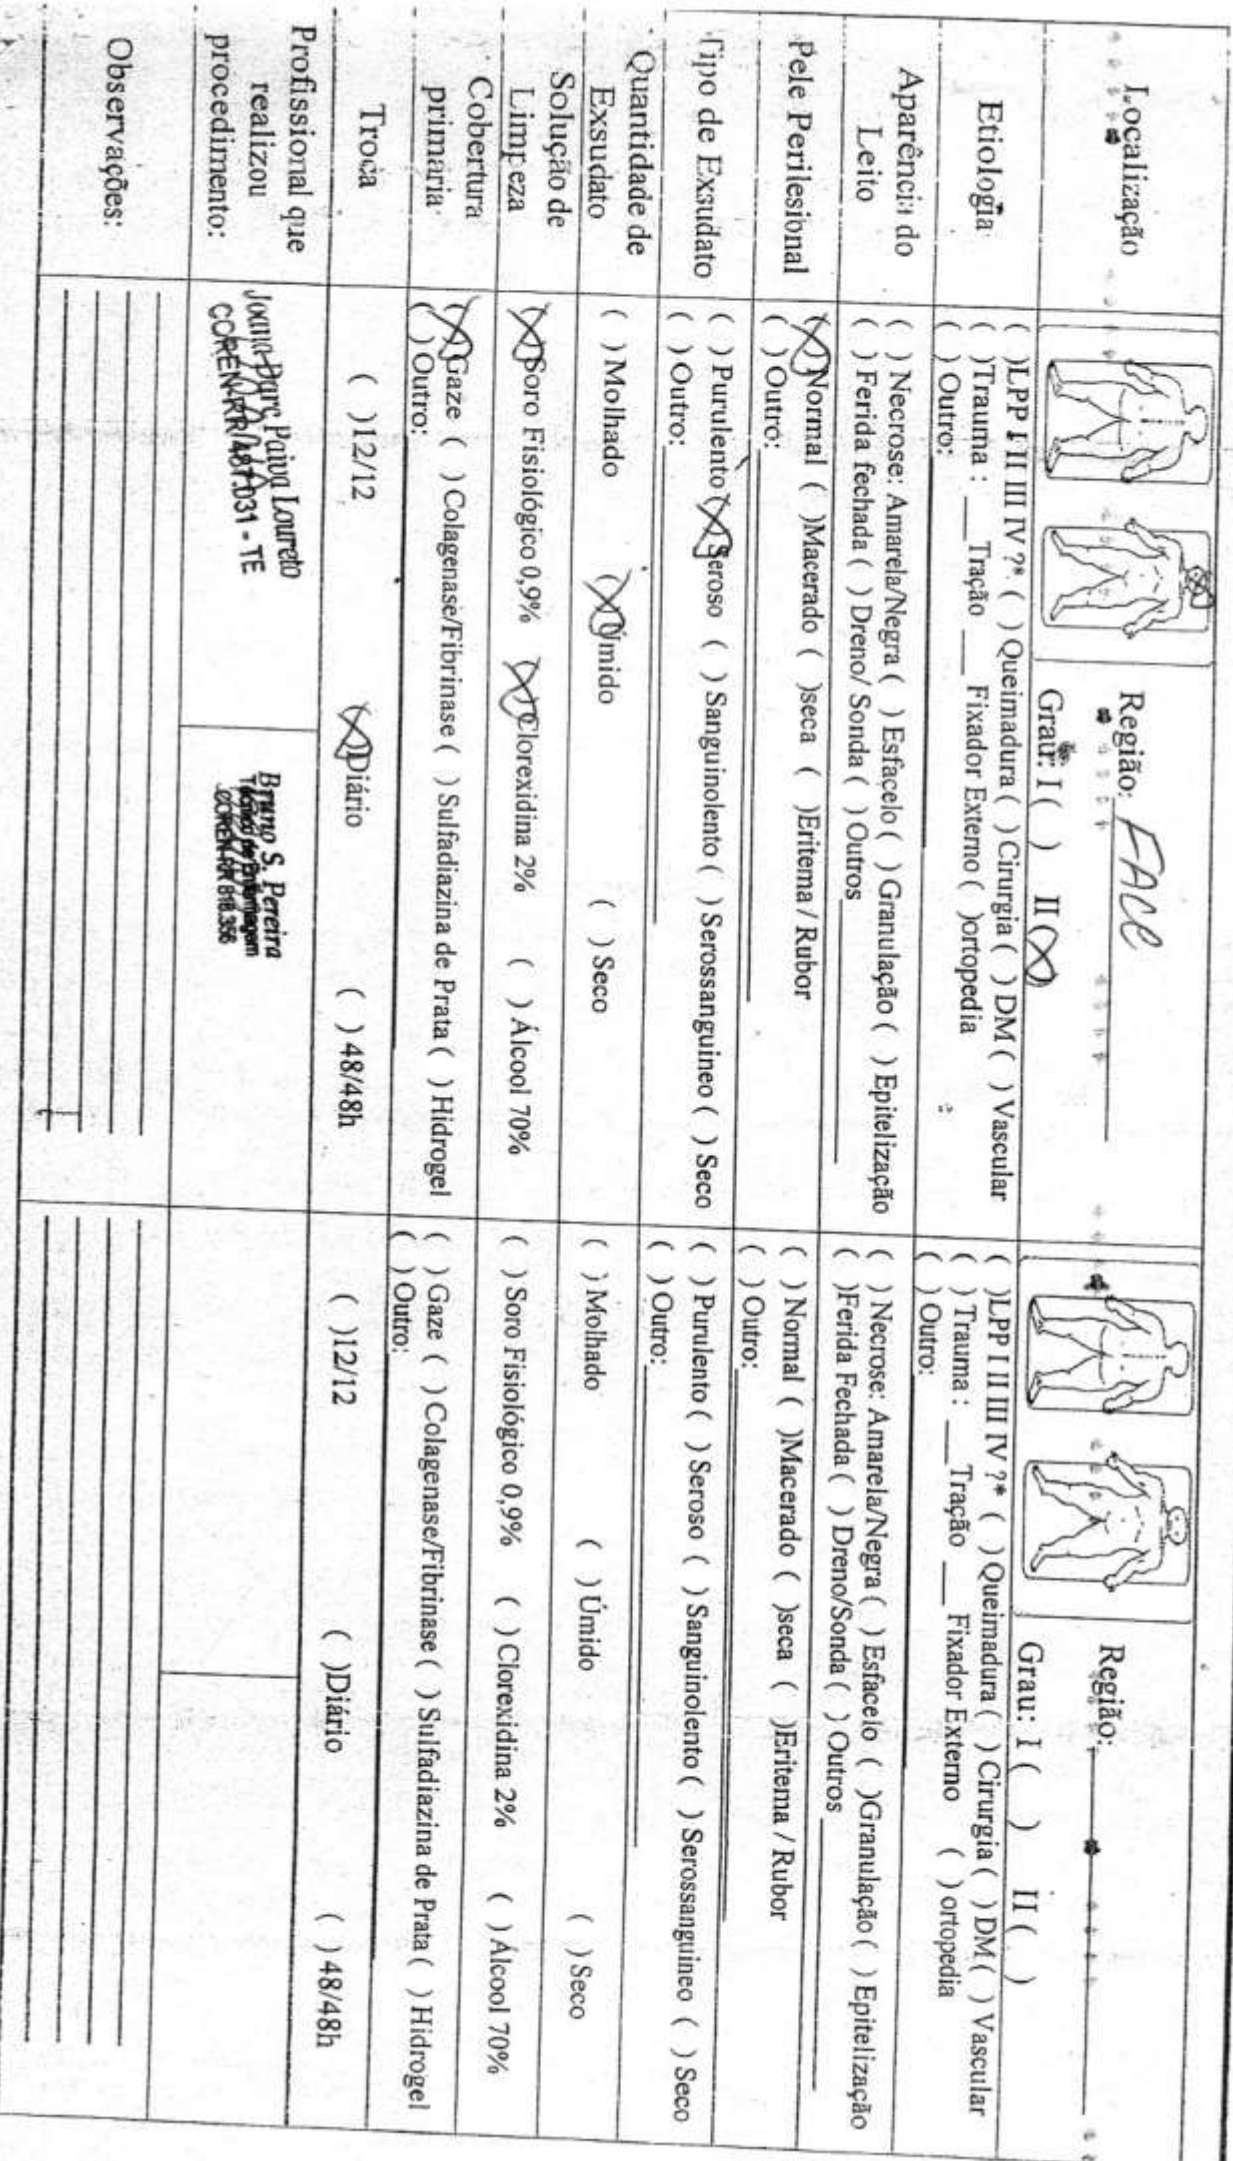 Localização
Região: FACE
Grau: I ( ) II (X)
Região:
Grau: I ( ) II ( )
Etiologia
( )LPP I II III IV ?* ( ) Queimadura ( ) Cirurgia ( ) DM ( ) Vascular
( )Trauma : ___Tração ___ Fixador Externo ( )ortopedia
( ) Outro:
( )LPP I II III IV ?* ( )Queimadura ( ) Cirurgia ( ) DM ( ) Vascular
( ) Trauma : ___Tração ___Fixador Externo ( ) ortopedia
( ) Outro:
Aparência do
Leito
( ) Necrose: Amarela/Negra ( ) Esfacelo ( ) Granulação ( ) Epitelização
( ) Ferida fechada ( ) Dreno/ Sonda ( ) Outros
( ) Necrose: Amarela/Negra ( ) Esfacelo ( )Granulação ( ) Epitelização
( )Ferida Fechada ( ) Dreno/Sonda ( ) Outros
Pele Perilesional
(X)Normal ( )Macerado ( )seca ( )Eritema / Rubor
( ) Outro:
( ) Normal ( )Macerado ( )seca ( )Eritema / Rubor
( ) Outro:
Tipo de Exsudato
( ) Purulento (X) Seroso ( ) Sanguinolento ( ) Serossanguineo ( ) Seco
( ) Outro:
( ) Purulento ( ) Seroso ( ) Sanguinolento ( ) Serossanguineo ( ) Seco
( ) Outro:
Quantidade de
Exsudato
( ) Molhado (X) Úmido ( ) Seco
( ) Molhado ( ) Úmido ( ) Seco
Solução de
Limpeza
(X) Soro Fisiológico 0,9% (X) Clorexidina 2% ( ) Álcool 70%
( ) Soro Fisiológico 0,9% ( ) Clorexidina 2% ( ) Álcool 70%
Cobertura
primária
(X) Gaze ( ) Colagenase/Fibrinase ( ) Sulfadiazina de Prata ( ) Hidrogel
( ) Outro:
( ) Gaze ( ) Colagenase/Fibrinase ( ) Sulfadiazina de Prata ( ) Hidrogel
( ) Outro:
Troca
( )12/12 (X)Diário ( ) 48/48h
( )12/12 ( )Diário ( ) 48/48h
Profissional que
realizou
procedimento:
Joana Darc Paiva Loureto
COREN-RR/487.031 - TE
Bruno S. Pereira
Técnico de Enfermagem
COREN-RR 818.356
Observações: